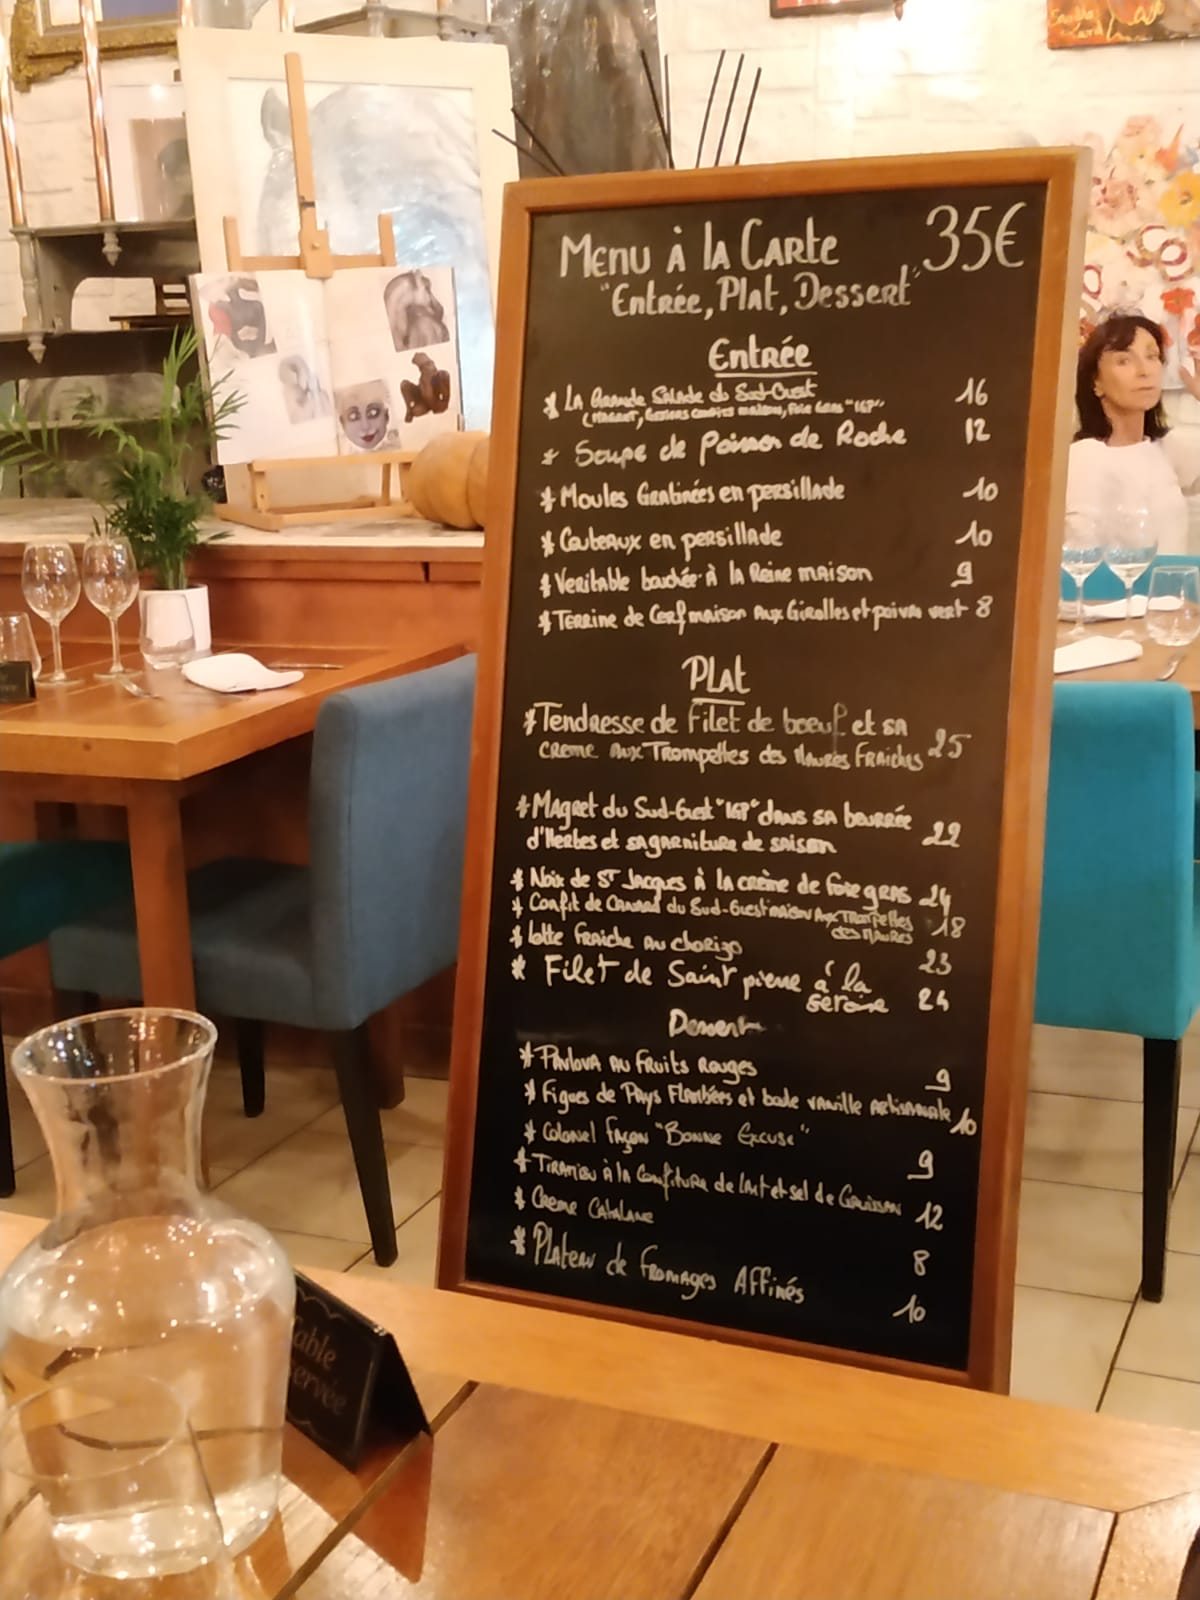 Menu à la Carte 35€
"Entrée, Plat, Dessert"
Entrée
* La Grande Salade du Sud-Ouest 16
(Magret, Gesiers confits maison, Foie Gras "IGP"
* Soupe de Poisson de Roche 12
* Moules Gratinées en persillade 10
* Couteaux en persillade 10
* Veritable bouchée à la Reine maison 9
* Terrine de Cerf maison aux Girolles et poivre vert 8
Plat
* Tendresse de Filet de boeuf et sa
creme aux Trompettes des Maures Fraiches 25
* Magret du Sud-Ouest "IGP" dans sa beurrée
d'Herbes et sa garniture de saison 22
* Noix de St Jacques à la crème de foie gras 24
* Confit de Canard du Sud-Ouest maison aux Trompettes
des Maures 18
* Lotte fraiche au chorizo 23
* Filet de Saint pierre à la 24
Dessert
* Pavlova au Fruits Rouges 9
* Figues de Pays Flambées et boule vanille artisanale 10
* Colonel façon "Bonne Excuse" 9
* Tiramisu à la Confiture de Lait et sel de Gruissan 12
* Creme Catalane 8
* Plateau de fromages Affinés 10